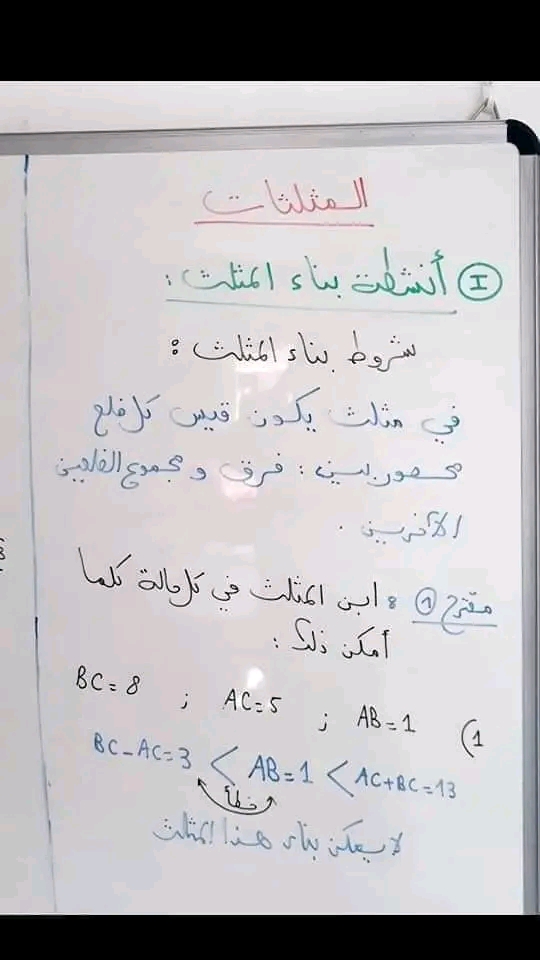 المثلثات
I أنشطة بناء المثلث :
شروط بناء المثلث :
في مثلث يكون قيس كل ضلع
محصور بين : فرق و مجموع الضلعين
الآخرين .
مقترح 1 : ابن المثلث في كل حالة كلما
أمكن ذلك :
1) AB=1 ; AC=5 ; BC=8
BC-AC=3 < AB=1 < AC+BC=13
خطأ
لا يمكن بناء هذا المثلث